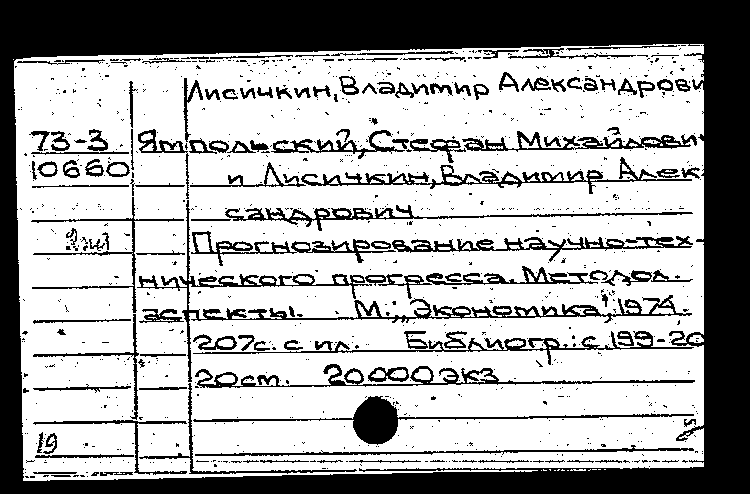 Лисичкин, Владимир Александрови
73-3 Ямпольский, Стефан Михайлович
10660 и Лисичкин, Владимир Алек-
сандрович
Прогнозирование научно-тех-
нического прогресса. Методол.
аспекты. М., „Экономика", 1974.
207с. с ил. Библиогр.: с. 199-20
20 см. 20000 экз
19